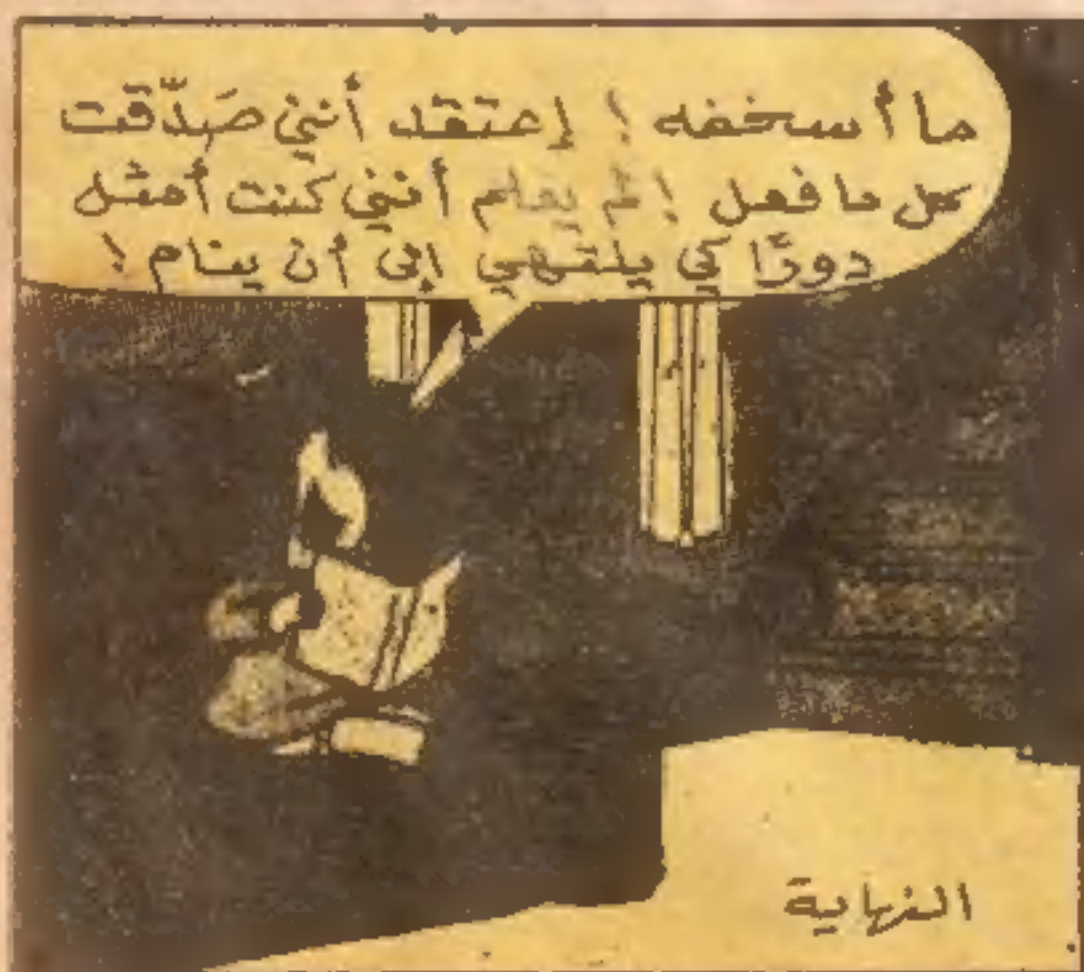 ما أسخفه ! إعتقد أنني صَدّقت
كل ما فعل ! لم يعلم أنني كنت أمثل
دورًا كي يلتهي إلى أن ينام !
النهاية